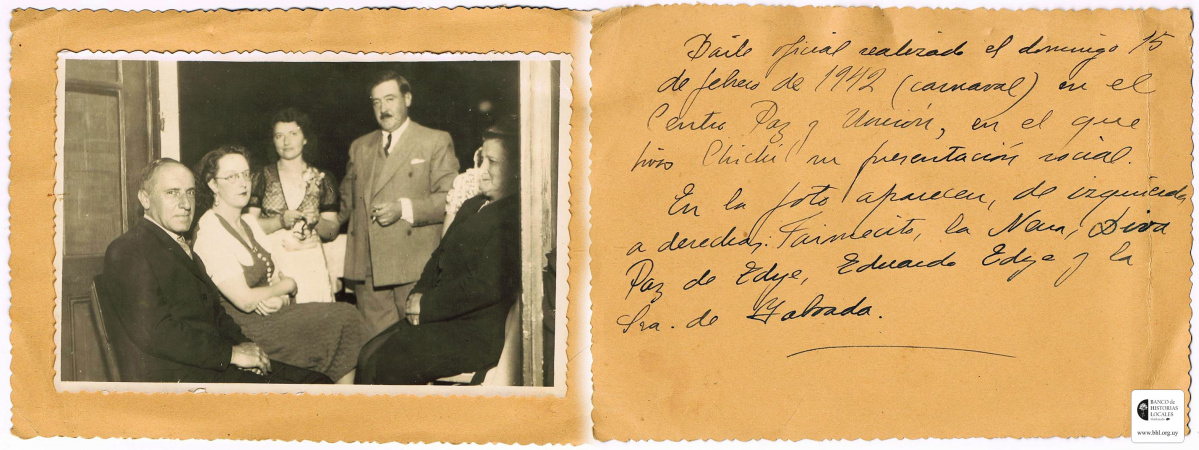 Baile oficial realizado el domingo 15
de febrero de 1942 (carnaval) en el
Centro Paz y Unión, en el que
hizo Chichí su presentación social.
En la foto aparecen, de izquierda
a derecha: Farmecito, la Nena, Diva
Paz de Edye, Eduardo Edye y la
Sra. de Gabrada.
BANCO de
HISTORIAS
LOCALES
www.bhl.org.uy